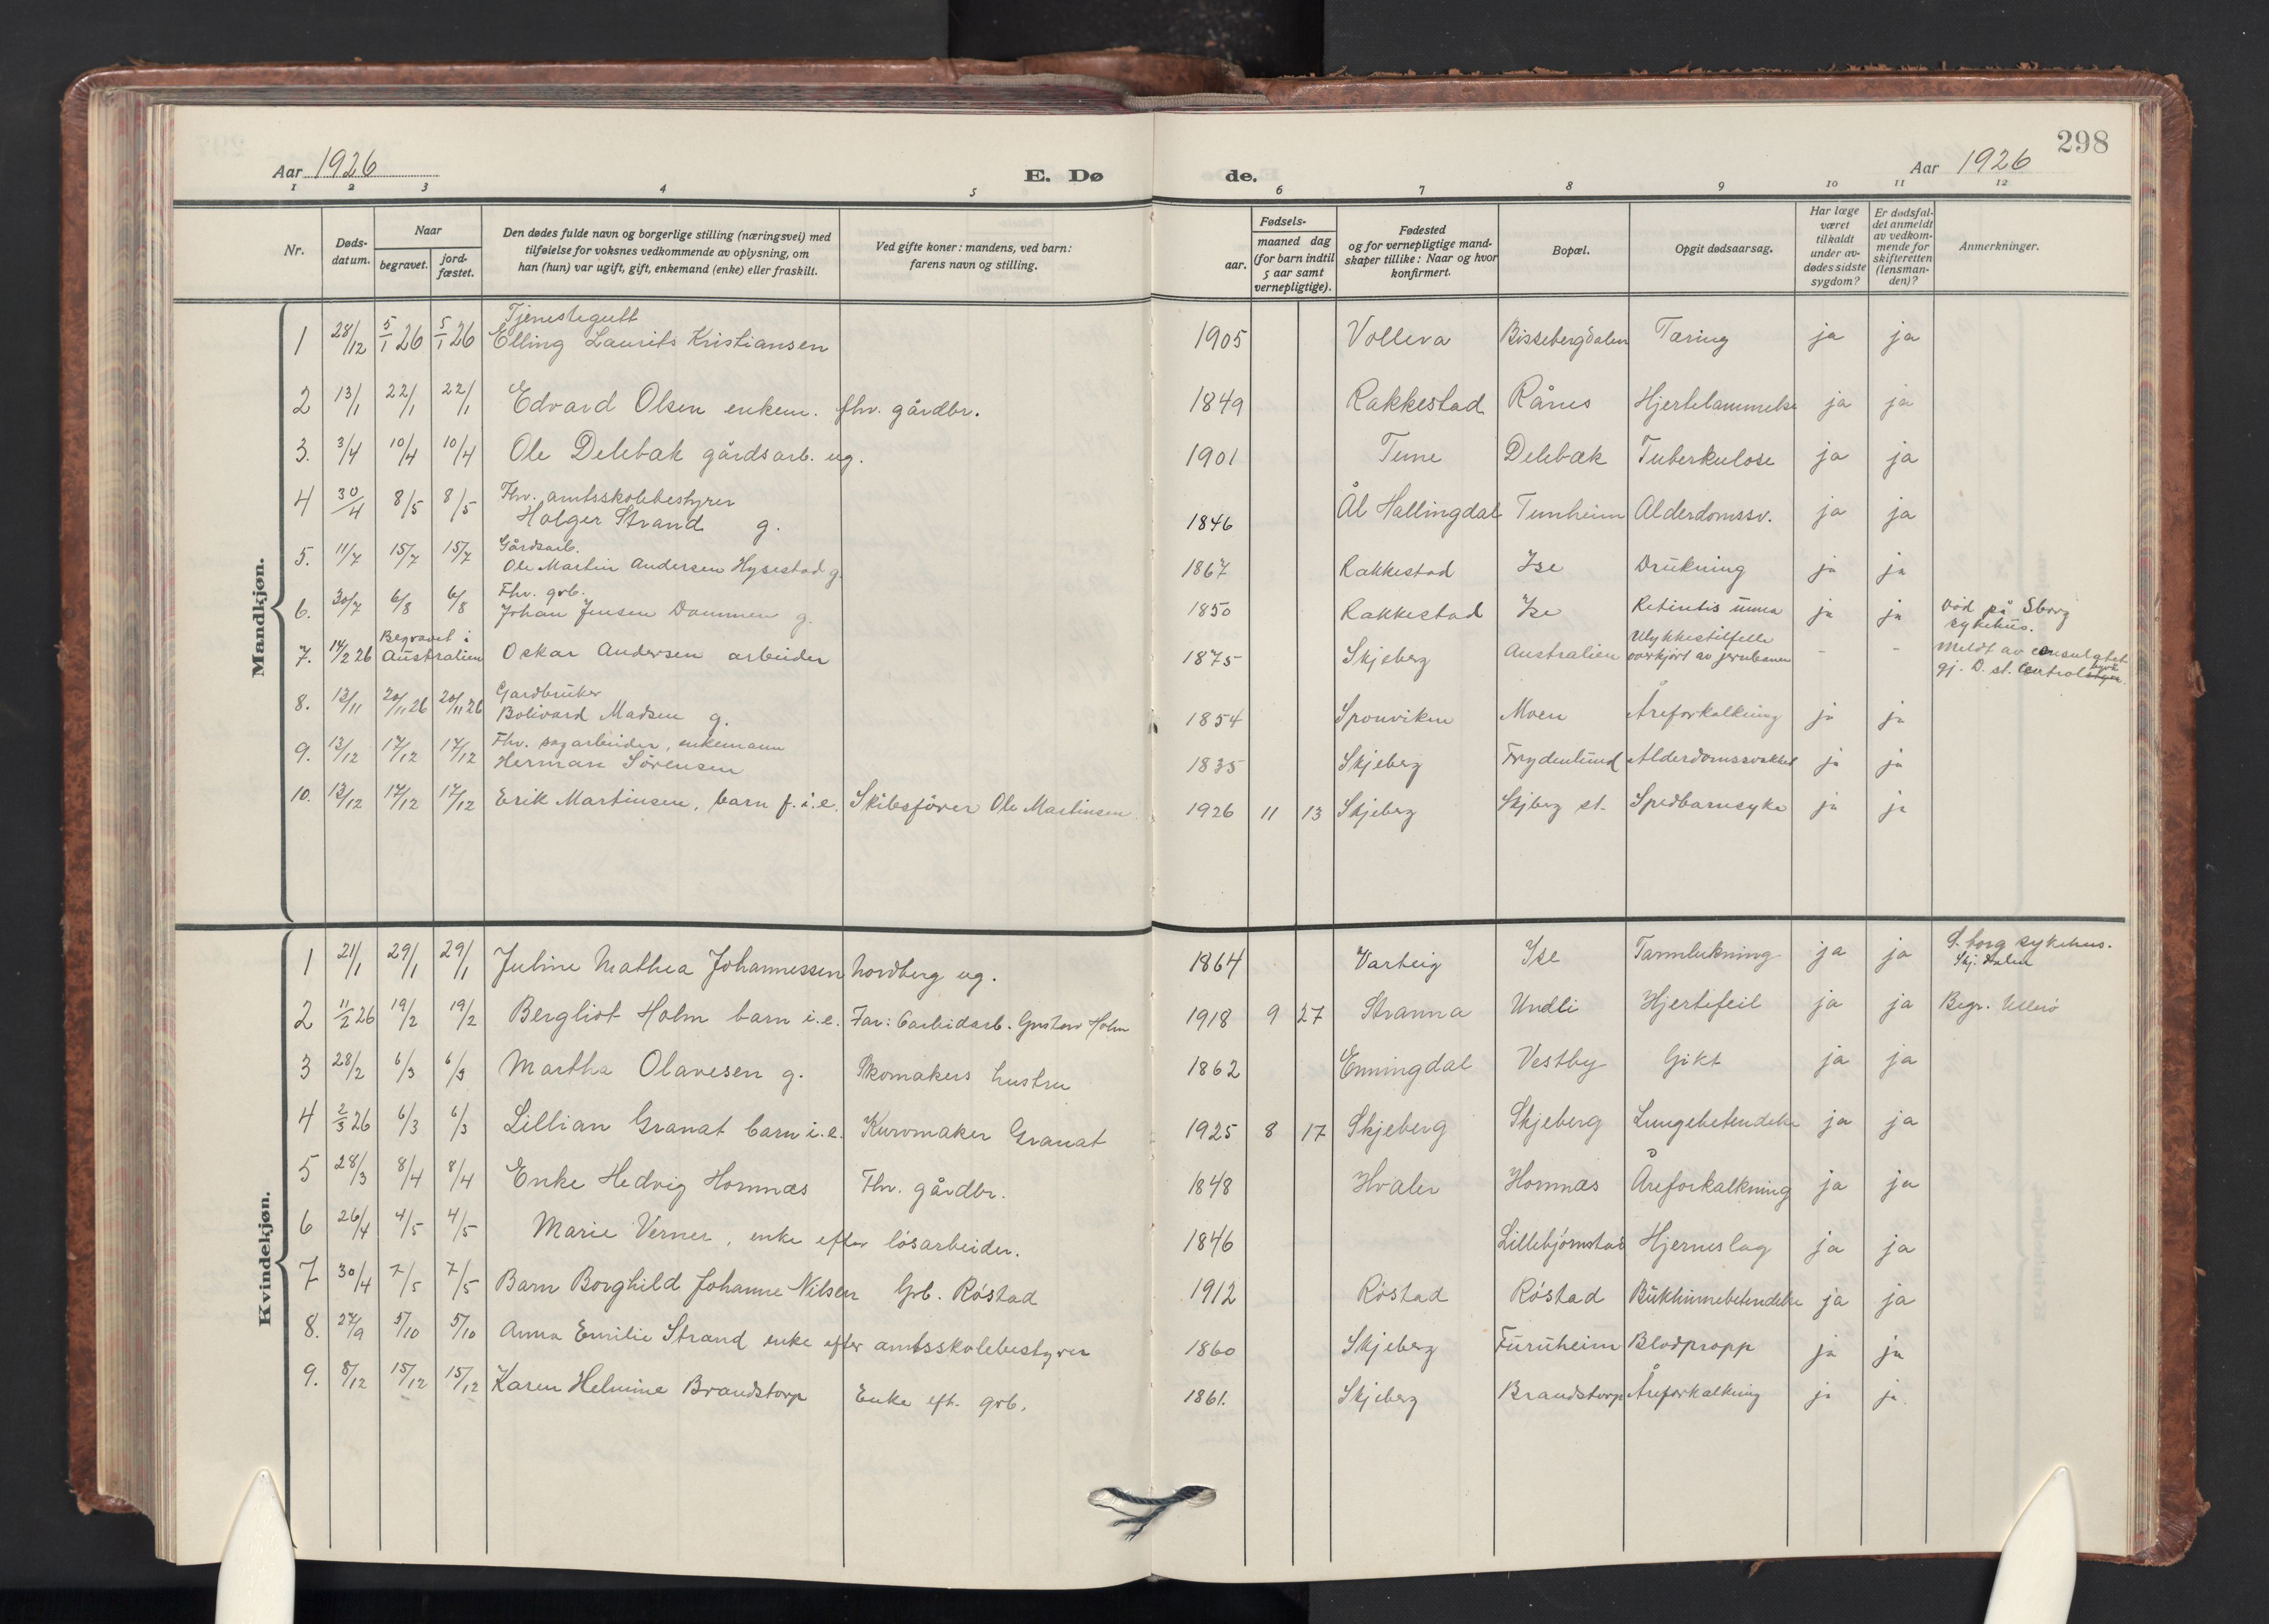 298
Aar 1926
E. Dø
de.
Aar 1926
1 2 3 4 5 6 7 8 9 10 11 12
Nr.
Døds-
datum.
Naar
begravet.
jord-
fæstet.
Den dødes fulde navn og borgerlige stilling (næringsvei) med
tilføielse for voksnes vedkommende av oplysning, om
han (hun) var ugift, gift, enkemand (enke) eller fraskilt.
Ved gifte koner: mandens, ved barn:
farens navn og stilling.
Fødsels-
aar.
maaned dag
(for barn indtil
5 aar samt
vernepligtige).
Fødested
og for vernepligtige mand-
skaper tillike: Naar og hvor
konfirmert.
Bopæl.
Opgit dødsaarsag.
Har læge
været
tilkaldt
under av-
dødes sidste
sygdom?
Er dødsfal-
det anmeldt
av vedkom-
mende for
skifteretten
(lensman-
den)?
Anmerkninger.
Mandkjøn.
Tjenestegutt
1 28/12 5/1 26 5/1 26 Elling Laurits Kristiansen 1905 Volleva Bissebergdalen Tæring ja ja
2 13/1 22/1 22/1 Edvard Olsen enkem. fhv. gårdbr. 1849 Rakkestad Rånes Hjertelammelse ja ja
3. 3/4 10/4 10/4 Ole Delebak gårdsarb. ug. 1901 Tune Delebæk Tuberkulose ja ja
Fhv. amtsskolebestyrer
4 30/4 8/5 8/5 Holger Strand g. 1846 Ål Hallingdal Tunheim Alderdomssv. ja ja
Gårdsarb.
5. 11/7 15/7 15/7 Ole Martin Andersen Hysestad g. 1867 Rakkestad Ise Drukning ja ja
Fhv. grb.
6. 30/7 6/8 6/8 Johan Jensen Dammen g. 1850 Rakkestad Ise ja ja Død på Sborg
sykehus.
7. 14/2 26 Begravet i
Australien Oskar Andersen arbeider 1875 Skjeberg Australien Ulykkestilfelle
overkjørt av jernbanen - - Meldt av consulatet
gj. D. st. Centralbyrå
Gardbruker
8. 13/11 20/11 26 20/11 26 Bolivard Madsen g. 1854 Sponviken Moen Åreforkalkning ja ja
Fhv. sagarbeider, enkemann
9. 13/12 17/12 17/12 Herman Sørensen 1835 Skjeberg Frydenlund Alderdomssvakhet ja ja
10. 13/12 17/12 17/12 Erik Martinsen, barn f. i. e. Skibsfører Ole Martinsen 1926 11 13 Skjeberg Skjberg st. Spedbarnsyke ja ja
Kvindekjøn.
1 21/1 29/1 29/1 Juline Mathea Johannessen Nordberg ug. 1864 Varteig Ise Tarmlukning ja ja S. borg sykehus.
2 11/2 26 19/2 19/2 Bergliot Holm barn i. e. Far: Carbidarb. Gustav Holm 1918 9 27 Stranna Undli Hjertefeil ja ja Begr. Ullerø
3 28/2 6/3 6/3 Martha Olavesen g. Skomakers hustru 1862 Enningdal Vestby Gikt ja ja
4 2/3 26 6/3 6/3 Lillian Granat barn i. e. Kurvmaker Granat 1925 8 17 Skjeberg Skjeberg Lungebetendelse ja ja
5 28/3 8/4 8/4 Enke Hedvig Hornnæs Fhv. gårdbr. 1848 Hvaler Hornnæs Åreforkalkning ja ja
6 26/4 4/5 4/5 Marie Verner, enke efter løsarbeider. 1846 Lillebjørnstad Hjerneslag ja ja
7 30/4 7/5 7/5 Barn Borghild Johanne Nilsen Grb. Røstad 1912 Røstad Røstad Bukhinnebetendelse ja ja
8. 27/9 5/10 5/10 Anna Emilie Strand enke efter amtsskolebestyrer 1860 Skjeberg Furuheim Blodpropp ja ja
9. 8/12 15/12 15/12 Karen Helmine Brandstorp Enke eft. grb. 1861. Skjeberg Brandstorp Åreforkalkning ja ja